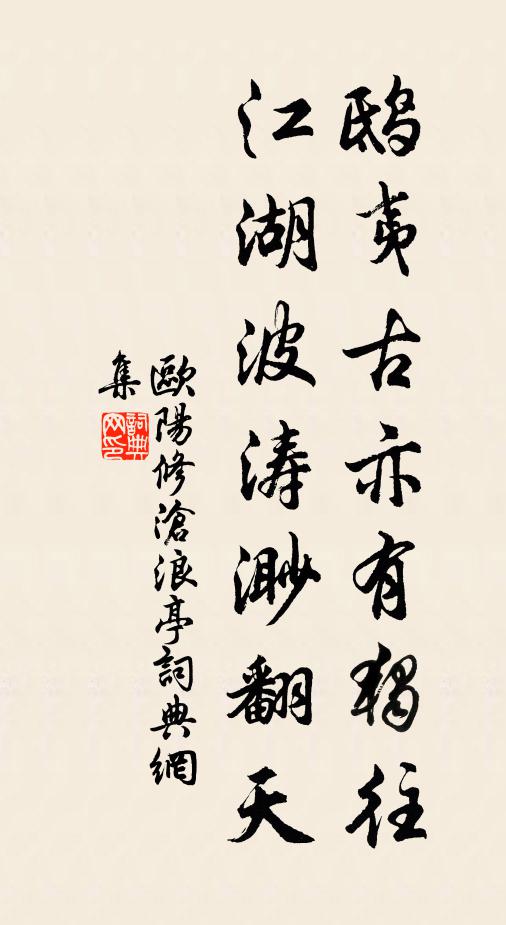 鴟夷古亦有獨往
江湖波涛渺翻天
歐陽修滄浪亭詞典網
集
詞典
网印